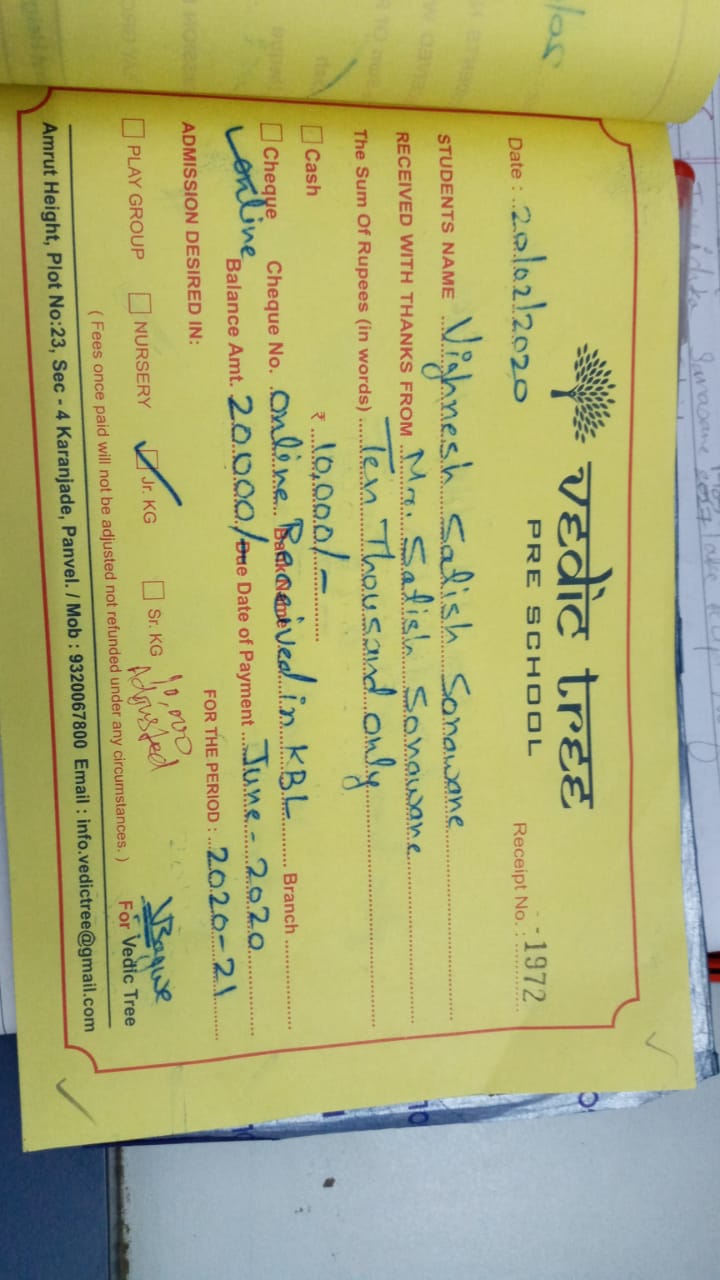 vedic tree
PRE SCHOOL
Date : 20/02/2020 Receipt No. : 1972
STUDENTS NAME Vighnesh Satish Sonawane
RECEIVED WITH THANKS FROM Mr. Satish Sonawane
The Sum Of Rupees (in words) Ten Thousand only
₹ 10,000/-
Cash
Cheque Cheque No. online Bank Name Received in KBL Branch
online Balance Amt. 20000/- Due Date of Payment June - 2020
ADMISSION DESIRED IN: FOR THE PERIOD : 2020-21
PLAY GROUP NURSERY Jr. KG Sr. KG 10,000
Adjusted
( Fees once paid will not be adjusted not refunded under any circumstances. )
For Vedic Tree
Amrut Height, Plot No:23, Sec - 4 Karanjade, Panvel. / Mob : 9320067800 Email : info.vedictree@gmail.com